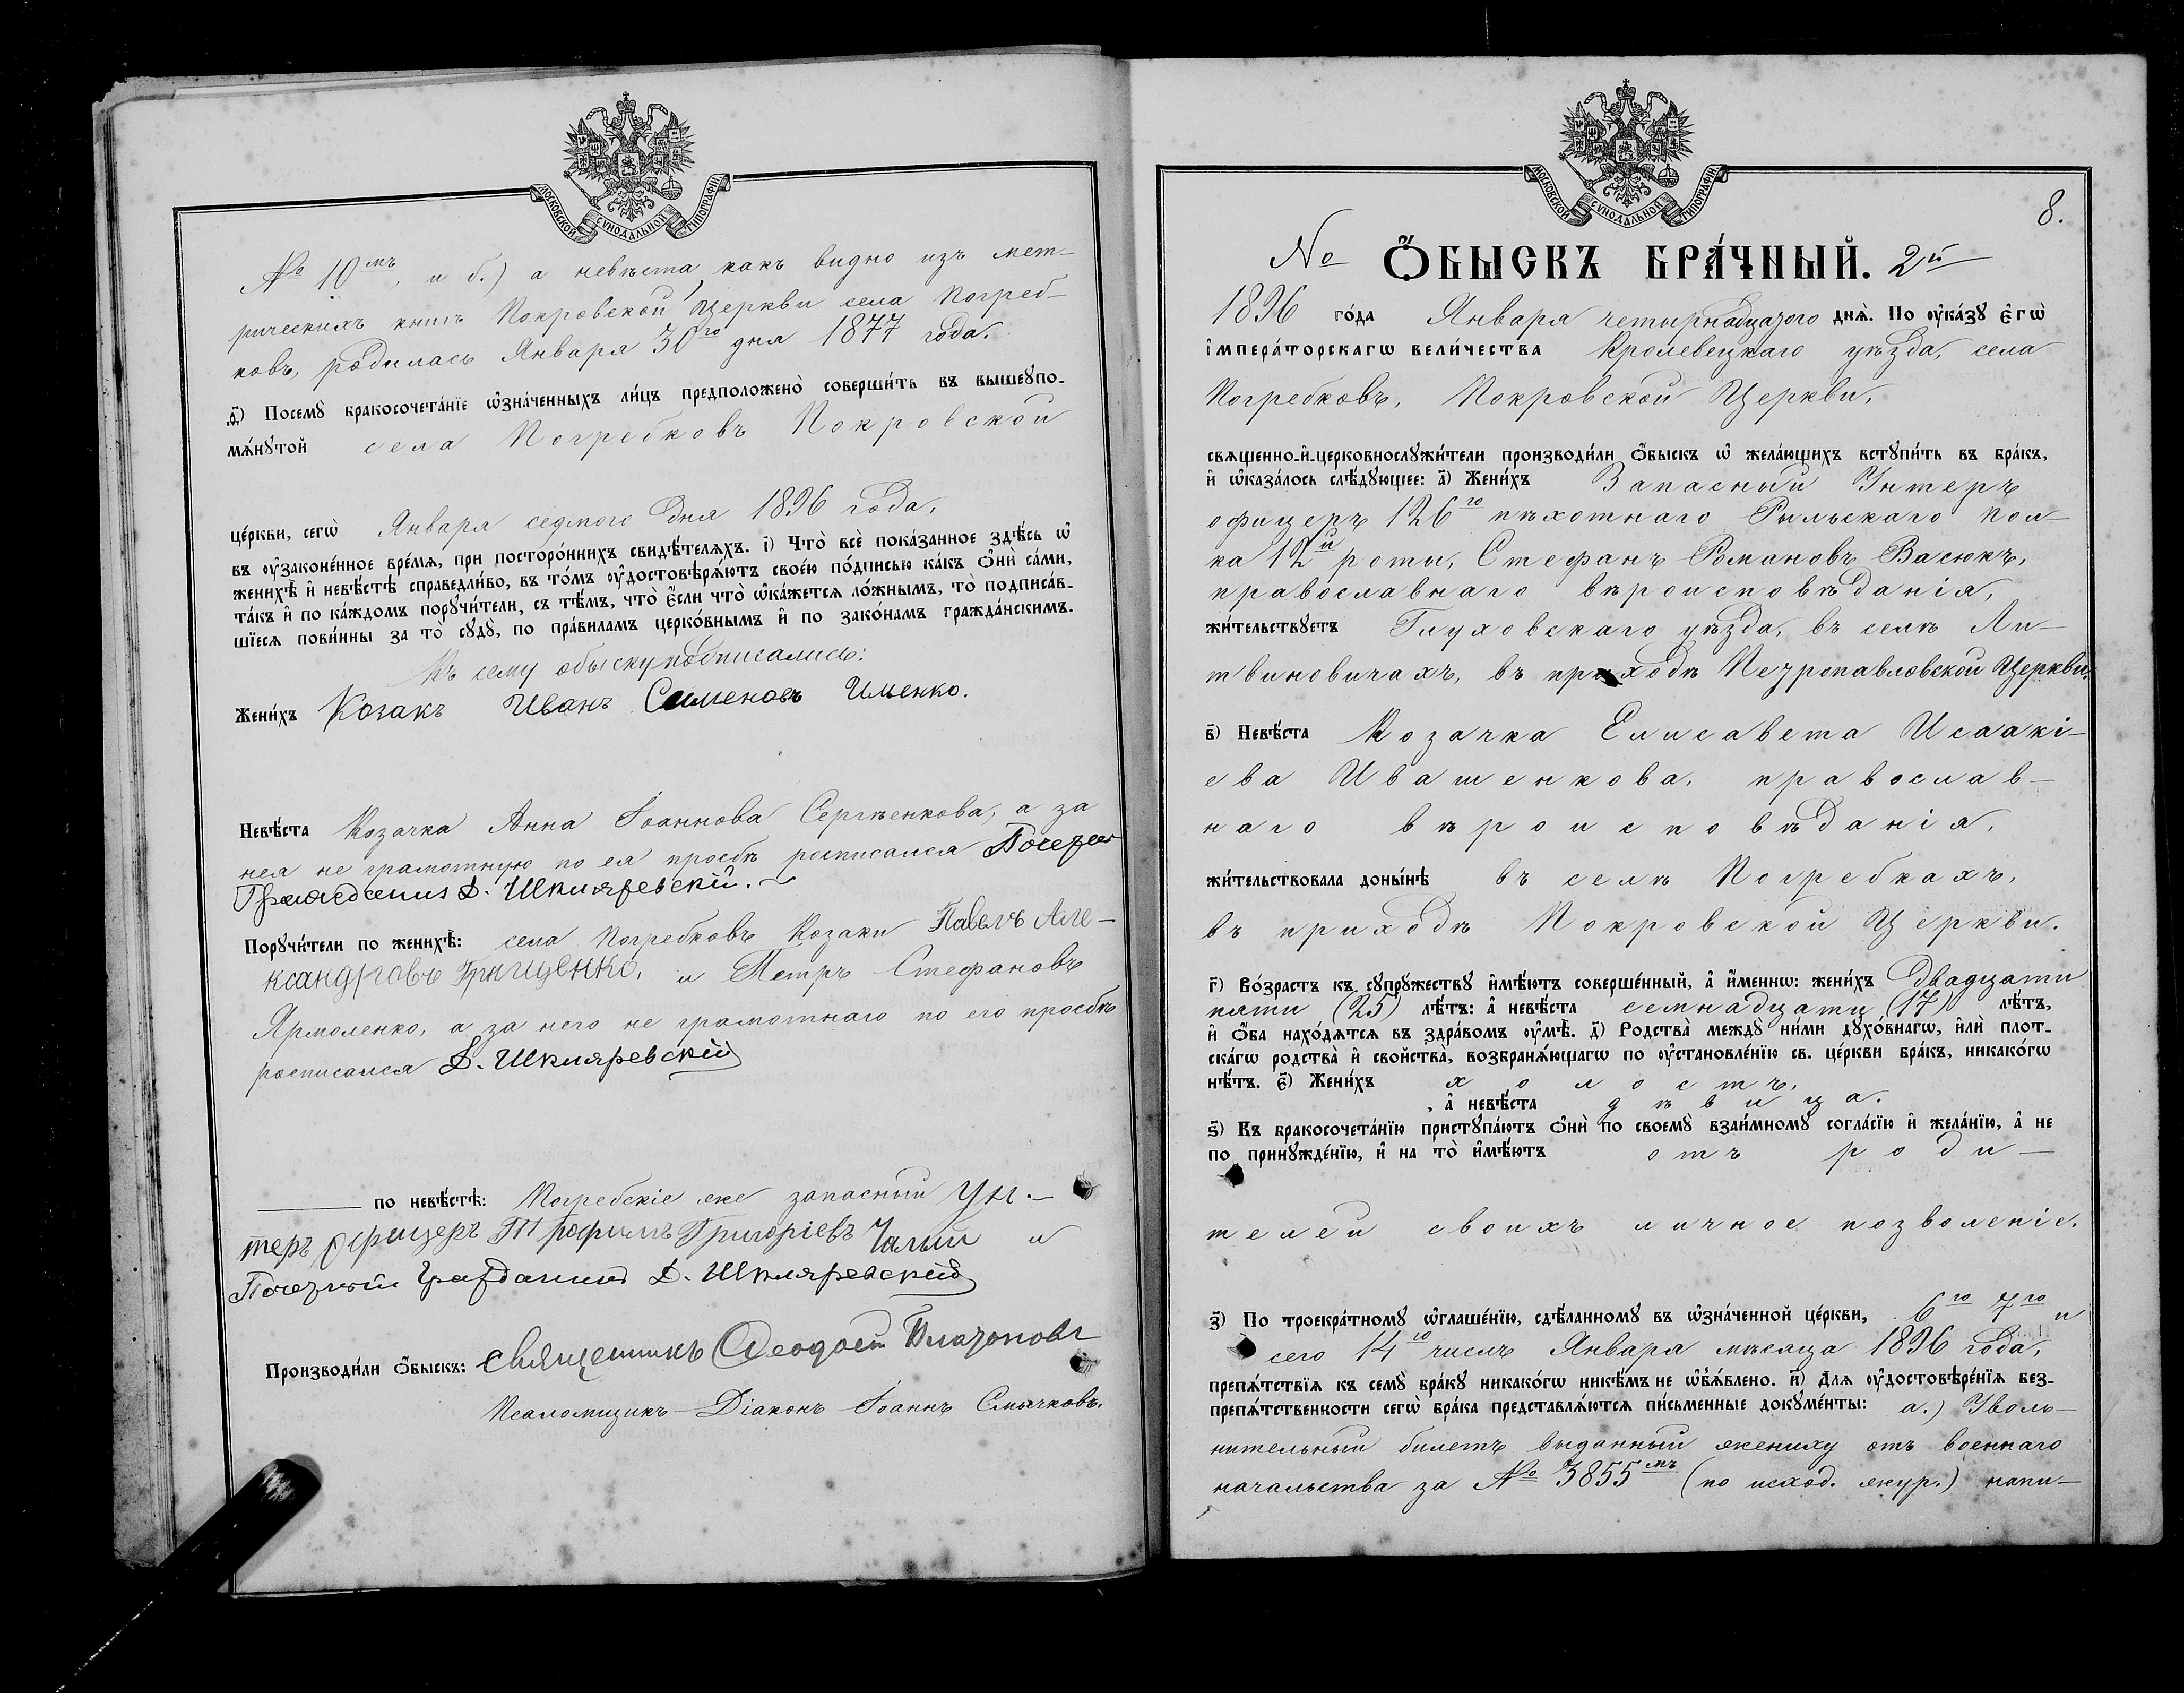 МОСКОВСКОЙ СУНОДАЛЬНОЙ ТИПОГРАФІИ
№ 10мъ, и б.) а невѣста, какъ видно изъ мет-
рическихъ книгъ Покровской Церкви села Погреб-
ковъ, родилась Января 30го дня 1877 года.
д҃) Посемꙋ̀ бракосочета́нїе ѡ҆зна́ченныхъ ли́цъ предположено̀ соверши́ть въ вышеꙋпо-
мѧ́нꙋтой села Погребковъ Покровской
це́ркви, сегѡ̀ Января седмого дня 1896 года,
въ ᲂу҆зако́ненное вре́мѧ, при посторо́ннихъ свидѣ́телѧхъ. і҃) Что̀ всѐ пока́занное здѣ́сь ѡ҆
женихѣ̀ и҆ невѣ́стѣ справедли́во, въ то́мъ ᲂу҆достовѣрѧ́ютъ свое́ю по́дписью ка́къ ѻ҆нѝ са́ми,
та́къ и҆ по ка́ждомъ порꙋчи́тели, съ тѣ́мъ, что̀ є҆́сли что̀ ѡ҆ка́жетсѧ ло́жнымъ, то̀ подписа́в-
шїесѧ пови́нны за то̀ сꙋдꙋ̀, по пра́виламъ церко́внымъ и҆ по зако́намъ гражда́нскимъ.
Къ сему обыску подписались:
Жени́хъ Козакъ Иванъ Семеновъ Именко.
Невѣ́ста Козачка Анна Іоаннова Сергѣенкова, а за
нея не грамотную по ея просьбѣ росписался
Д. Шкляревскій.
Порꙋчи́тели по женихѣ̀: села Погребковъ Козаки Павелъ Але-
ксандровъ Грищенко, и Петръ Стефановъ
Ярмоленко, а за него не грамотнаго по его просьбѣ
росписался Д. Шкляревскій
по невѣ́стѣ: Погребскіе же запасный Ун.-
теръ офицеръ Трофимъ Григоріевъ Чалый и
Почетный Гражданинъ Д. Шкляревскій
Производи́ли ѻ҆́быскъ: Священникъ Феодосій Платоновъ
Псаломщикъ-Діаконъ Іоаннъ Смычковъ.
МОСКОВСКОЙ СУНОДАЛЬНОЙ ТИПОГРАФІИ
8.
№ Ѻ҆́БЫСКЪ БРА́ЧНЫЙ. 2й
1896 го́да Января четырнадцатого днѧ̀. По ᲂу҆ка́зꙋ є҆гѡ̀
і҆мпера́торскагѡ вели́чества Кролевецкаго уѣзда, села
Погребковъ, Покровской Церкви,
свѧщенно-и҆-церковнослꙋжи́тели производи́ли ѻ҆́быскъ ѡ҆ жела́ющихъ встꙋпи́ть въ бра́къ,
и҆ ѡ҆каза́лось слѣ́дꙋющее: а҃) Жени́хъ Запасный Унтеръ
офицеръ 126го пѣхотнаго Рыльскаго пол-
ка 12й роты, Стефанъ Романовъ Васюкъ,
православнаго вѣроисповѣданія,
жи́тельствꙋетъ Глуховскаго уѣзда, въ селѣ Ли-
твиновичахъ, въ приходѣ Петропавловской Церкви,
в҃) Невѣ́ста Козачка Елисавета Исаакі-
ева Ивашенкова, православ-
наго вѣроисповѣданія,
жи́тельствовала доны́нѣ въ селѣ Погребкахъ,
въ приходѣ Покровской Церкви.
г҃) Во́зрастъ къ сꙋпрꙋ́жествꙋ и҆мѣ́ютъ соверше́нный, а҆ и҆́менно: жени́хъ двадцати
пяти (25) лѣ́тъ: а҆ невѣ́ста семнадцати (17) лѣ́тъ,
и҆ ѻ҆́ба нахо́дѧтсѧ въ здра́вомъ ᲂу҆мѣ̀. д҃) Родства̀ междꙋ̀ ни́ми дꙋхо́внагѡ, и҆лѝ плот-
ска́гѡ родства̀ и҆ свойства̀, возбранѧ́ющагѡ по ᲂу҆становле́нїю св. це́ркви бра́къ, никако́гѡ
нѣ́тъ. є҃) Жени́хъ холостъ,
, а҆ невѣ́ста дѣвица.
ѕ҃) Къ бракосочета́нїю пристꙋпа́ютъ ѻ҆нѝ по своемꙋ̀ взаи́мномꙋ согла́сїю и҆ жела́нїю, а҆ не
по принꙋжде́нїю, и҆ на то̀ и҆мѣ́ютъ отъ роди-
телей своихъ личное позволеніе.
з҃) По троекра́тномꙋ ѡ҆глаше́нїю, сдѣ́ланномꙋ въ ѡ҆зна́ченной це́ркви, 6го 7го и
сего 14го числъ Января мѣсяца 1896 года,
препѧ́тствїѧ къ семꙋ̀ бра́кꙋ никако́гѡ никѣ́мъ не ѡ҆бъѧ́влено. и҃) Длѧ ᲂу҆достовѣре́нїѧ без-
препѧ́тственности сегѡ̀ бра́ка представлѧ́ютсѧ пи́сьменные докꙋме́нты: а.) Уволь-
нительный билетъ выданный жениху отъ военнаго
начальства за № 3855мъ (по исход. жур.) напи-